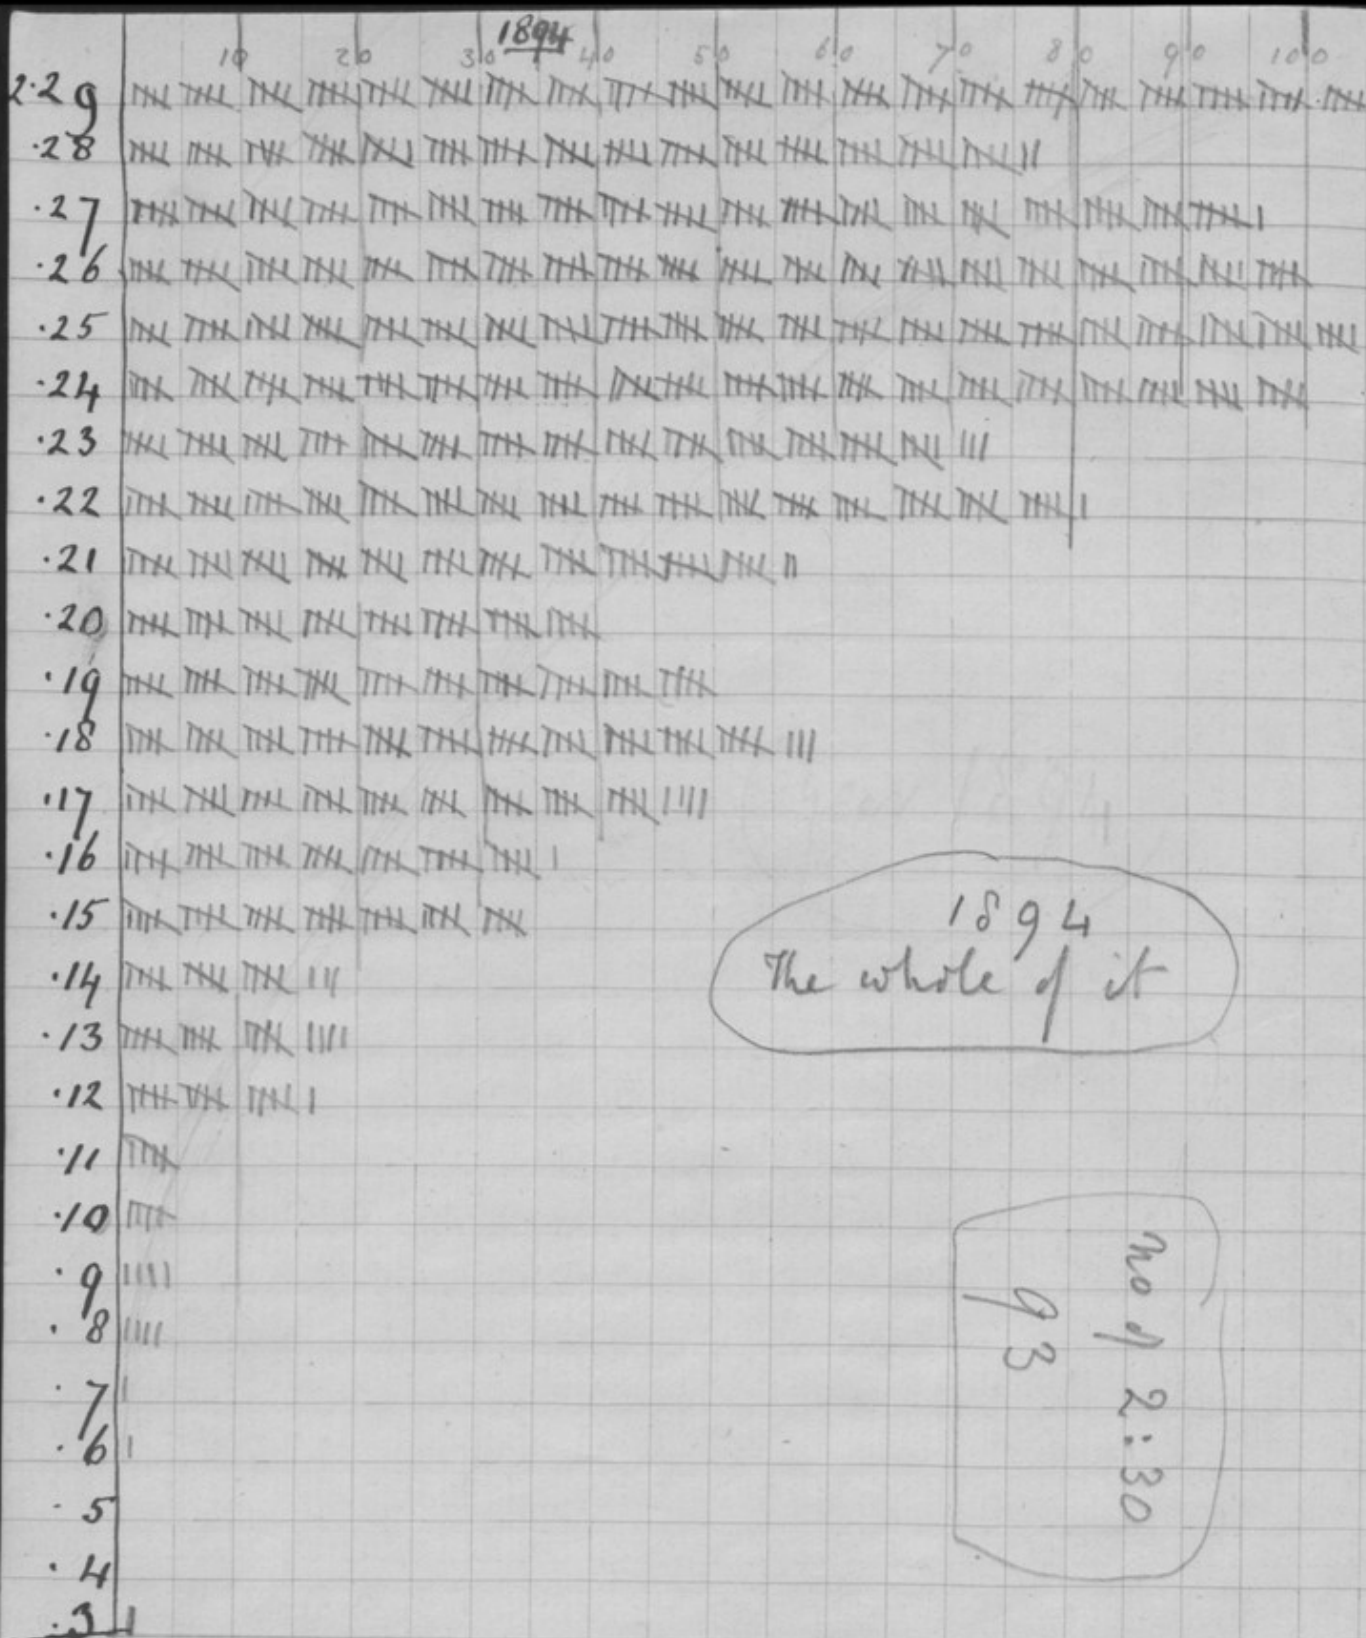 1894
10 20 30 40 50 60 70 80 90 100
2.29
.28
.27
.26
.25
.24
.23
.22
.21
.20
.19
.18
.17
.16
.15
.14
.13
.12
.11
.10
.9
.8
.7
.6
.5
.4
.3
1894
The whole of it
no of 2:30
93